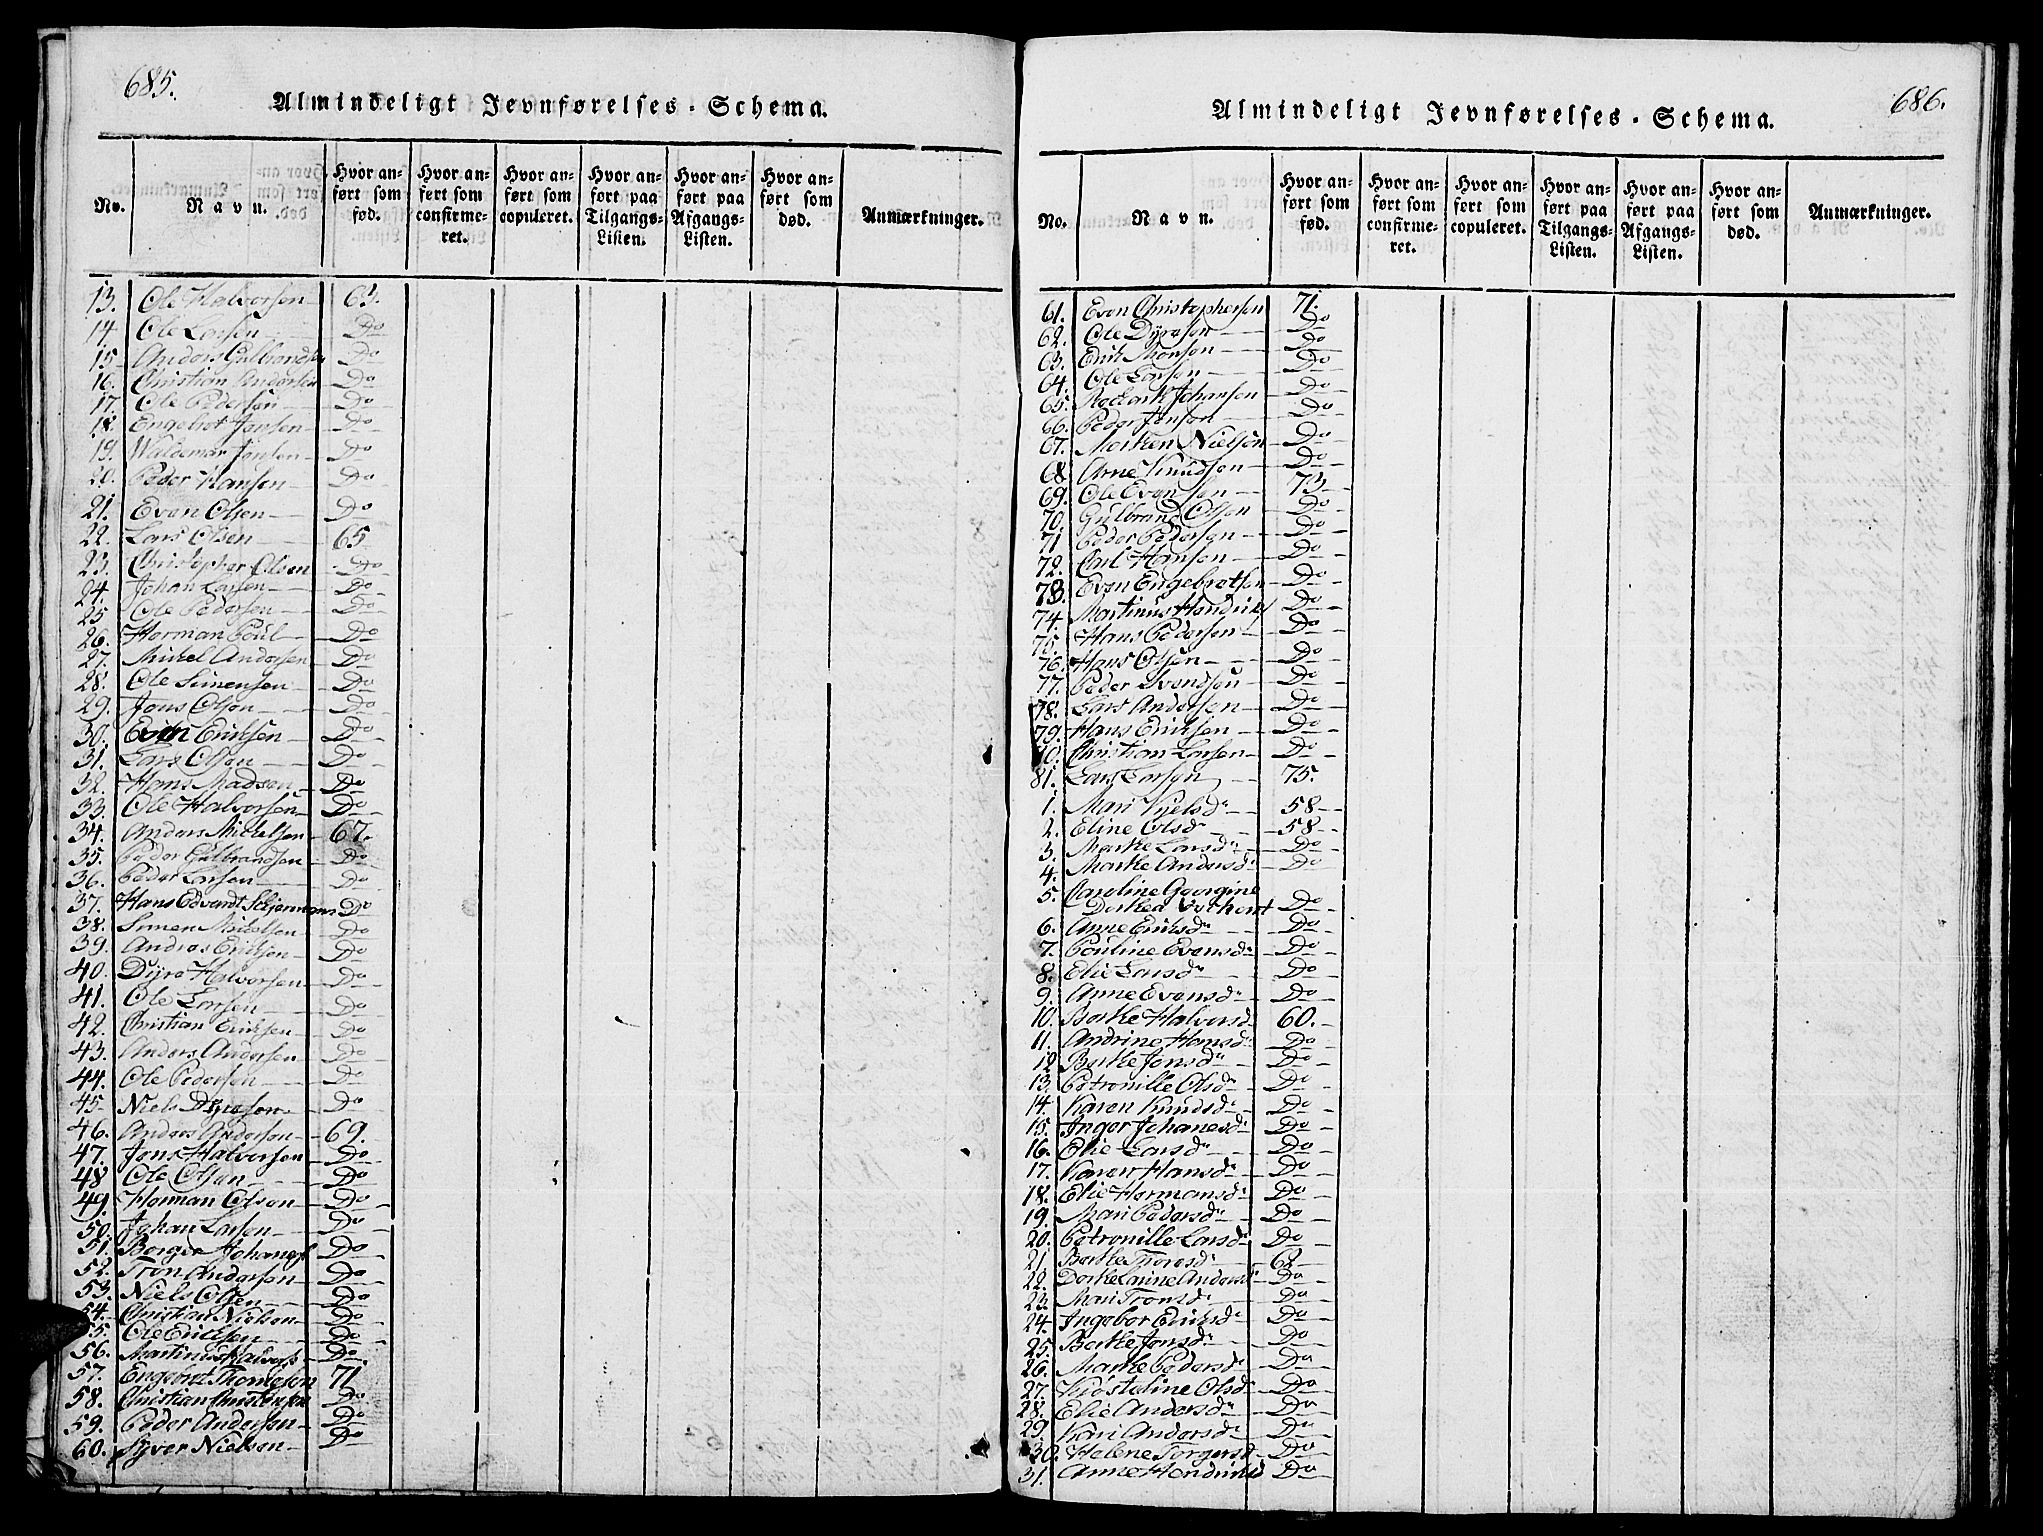 685.
Almindeligt Jevnførelses-Schema.
No. Navn. Hvor anført som fød. Hvor anført som confirmeret. Hvor anført som copuleret. Hvor anført paa Tilgangs-Listen. Hvor anført paa Afgangs-Listen. Hvor anført som død. Anmærkninger.
13. Ole Halvorsen 63.
14. Ole Larsen Do
15 Anders Gulbrandsen Do
16. Christian Andersen Do
17. Ole Pedersen Do
18. Engebret Jansen Do
19. Waldemar Jonsen Do
20. Peder Hansen Do
21. Even Olsen Do
22. Lars Olsen 65
23. Christopher Olsen Do
24. Johan Larsen Do
25 Ole Pedersen Do
26. Herman Poul Do
27. Mickel Andersen Do
28. Ole Simensen Do
29. Jens Olsen Do
30. Even Eriksen Do
31. Lars Olsen Do
32. Hans Madsen Do
33. Ole Halvorsen Do
34. Anders Mickelsen 67.
35. Peder Gulbrandsen Do
36. Peder Larsen Do
37. Hans Edvardt Do
38. Simen Mickelsen Do
39. Andreas Eriksen Do
40. Dyre Halvorsen Do
41. Ole Larsen Do
42. Christian Eriksen Do
43. Anders Andersen Do
44. Ole Pedersen Do
45 Niels Dyresen Do
46. Anders Andersen 69.
47. Jens Halvorsen Do
48 Ole Olsen Do
49. Herman Olsen Do
50. Johan Larsen Do
51. Borger Johanes Do
52. Tron Andersen Do
53. Niels Olsen Do
54. Christian Nielsen Do
55. Ole Eriksen Do
56. Martinus Halvors Do
57. Engebret Thomesen 71
58. Christian Christensen Do
59. Peder Andersen Do
60. Syver Nielsen Do
686.
Almindeligt Jevnførelses-Schema.
No. Navn. Hvor anført som fød. Hvor anført som confirmeret. Hvor anført som copuleret. Hvor anført paa Tilgangs-Listen. Hvor anført paa Afgangs-Listen. Hvor anført som død. Anmærkninger.
61. Even Christophersen 71.
62. Ole Dyresen Do
63. Erik Monsen Do
64. Ole Larsen Do
65. Johansen Do
66. Peder Jensen Do
67. Morten Nielsen Do
68 Arne Knudsen Do
69. Ole Evensen 73
70. Gulbrand Olsen Do
71 Peder Pedersen Do
72. Carl Hansen Do
73. Even Engebretsen Do
74. Martinus Hendriks Do
75. Hans Pedersen Do
76. Hans Olsen Do
77. Peder Svendsen Do
78. Lars Andersen Do
79. Hans Eriksen Do
80. Christian Larsen Do
81. Lars Larsen 75.
1. Mari Nielsdr 58
2. Eline Olsdr 58
3. Marthe Larsdr Do
4. Marthe Andersdr Do
5. Caroline Georgine
Dorthea Do
6. Anne Eriksdr Do
7. Pouline Evensdr Do
8. Elie Larsdr Do
9. Anne Evensdr Do
10. Berthe Halvorsd 60.
11. Andrine Hansdr Do
12 Berthe Jensdr Do
13. Petronille Olsdr Do
14. Karen Knudsdr Do
15. Inger Johanesdr Do
16. Elie Larsdr Do
17. Karen Hansdr Do
18. Elie Hermansdr Do
19. Mari Pedersdr Do
20. Petronille Larsdr Do
21. Berthe Thoresdr 62
22. Dorthe Larine Andersdr Do
23. Mari Tronsdr Do
24. Ingebor Eriksdr Do
25. Berthe Jensdr Do
26. Marthe Pedersdr Do
27. Kiøsteline Olsdr Do
28. Elie Andersdr Do
29. Kari Andersdr Do
30. Helene Torgersd Do
31. Anne Hendriksd Do